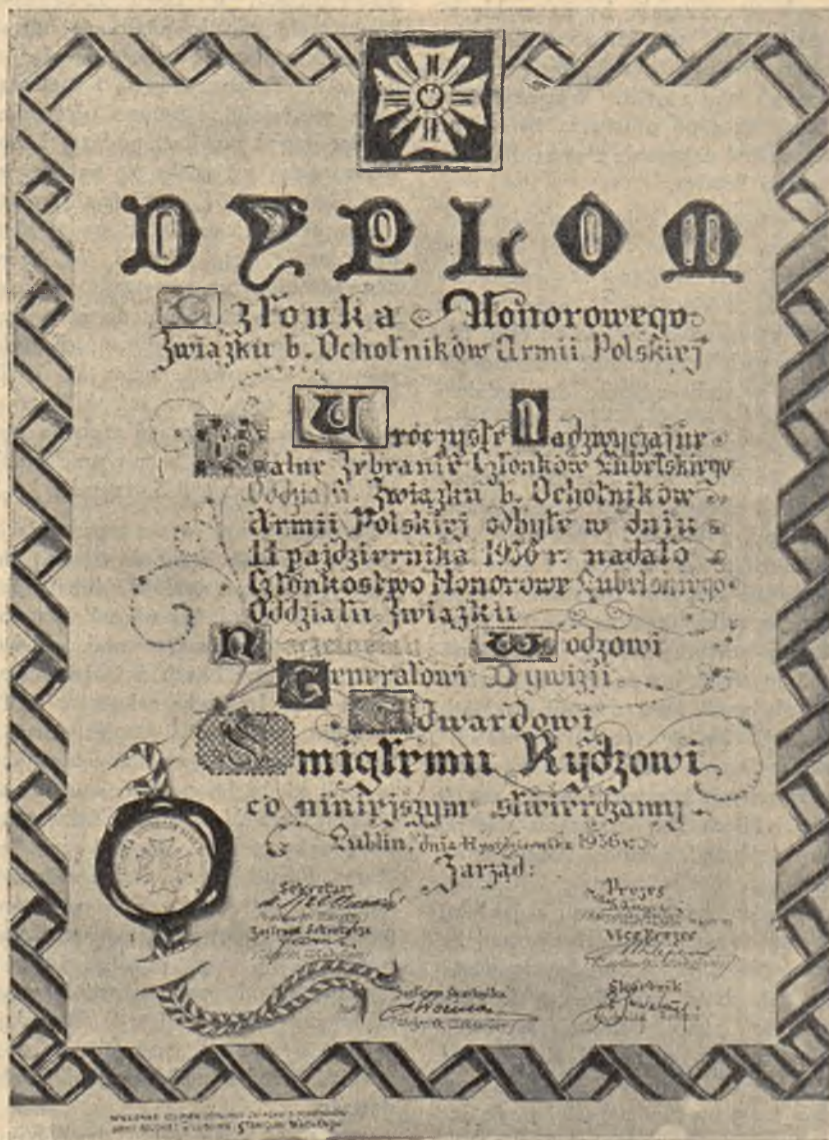 DYPLOM
Członka Honorowego
Związku b. Ochotników Armii Polskiej
Uroczyste Nadzwyczajne
Walne Zebranie Członków Lubelskiego
Oddziału Związku b. Ochotników
Armii Polskiej odbyte w dniu
11 października 1936 r. nadało
Członkostwo Honorowe Lubelskiego
Oddziału Związku
Naczelnemu Wodzowi
Generałowi Dywizji
Edwardowi
Śmigłemu Rydzowi
co niniejszym stwierdzamy
Lublin, dnia 11 października 1936 r.
Zarząd:
Sekretarz
Prezes
Zastępca Sekretarza
Viceprezes
Zastępca Skarbnika
Skarbnik